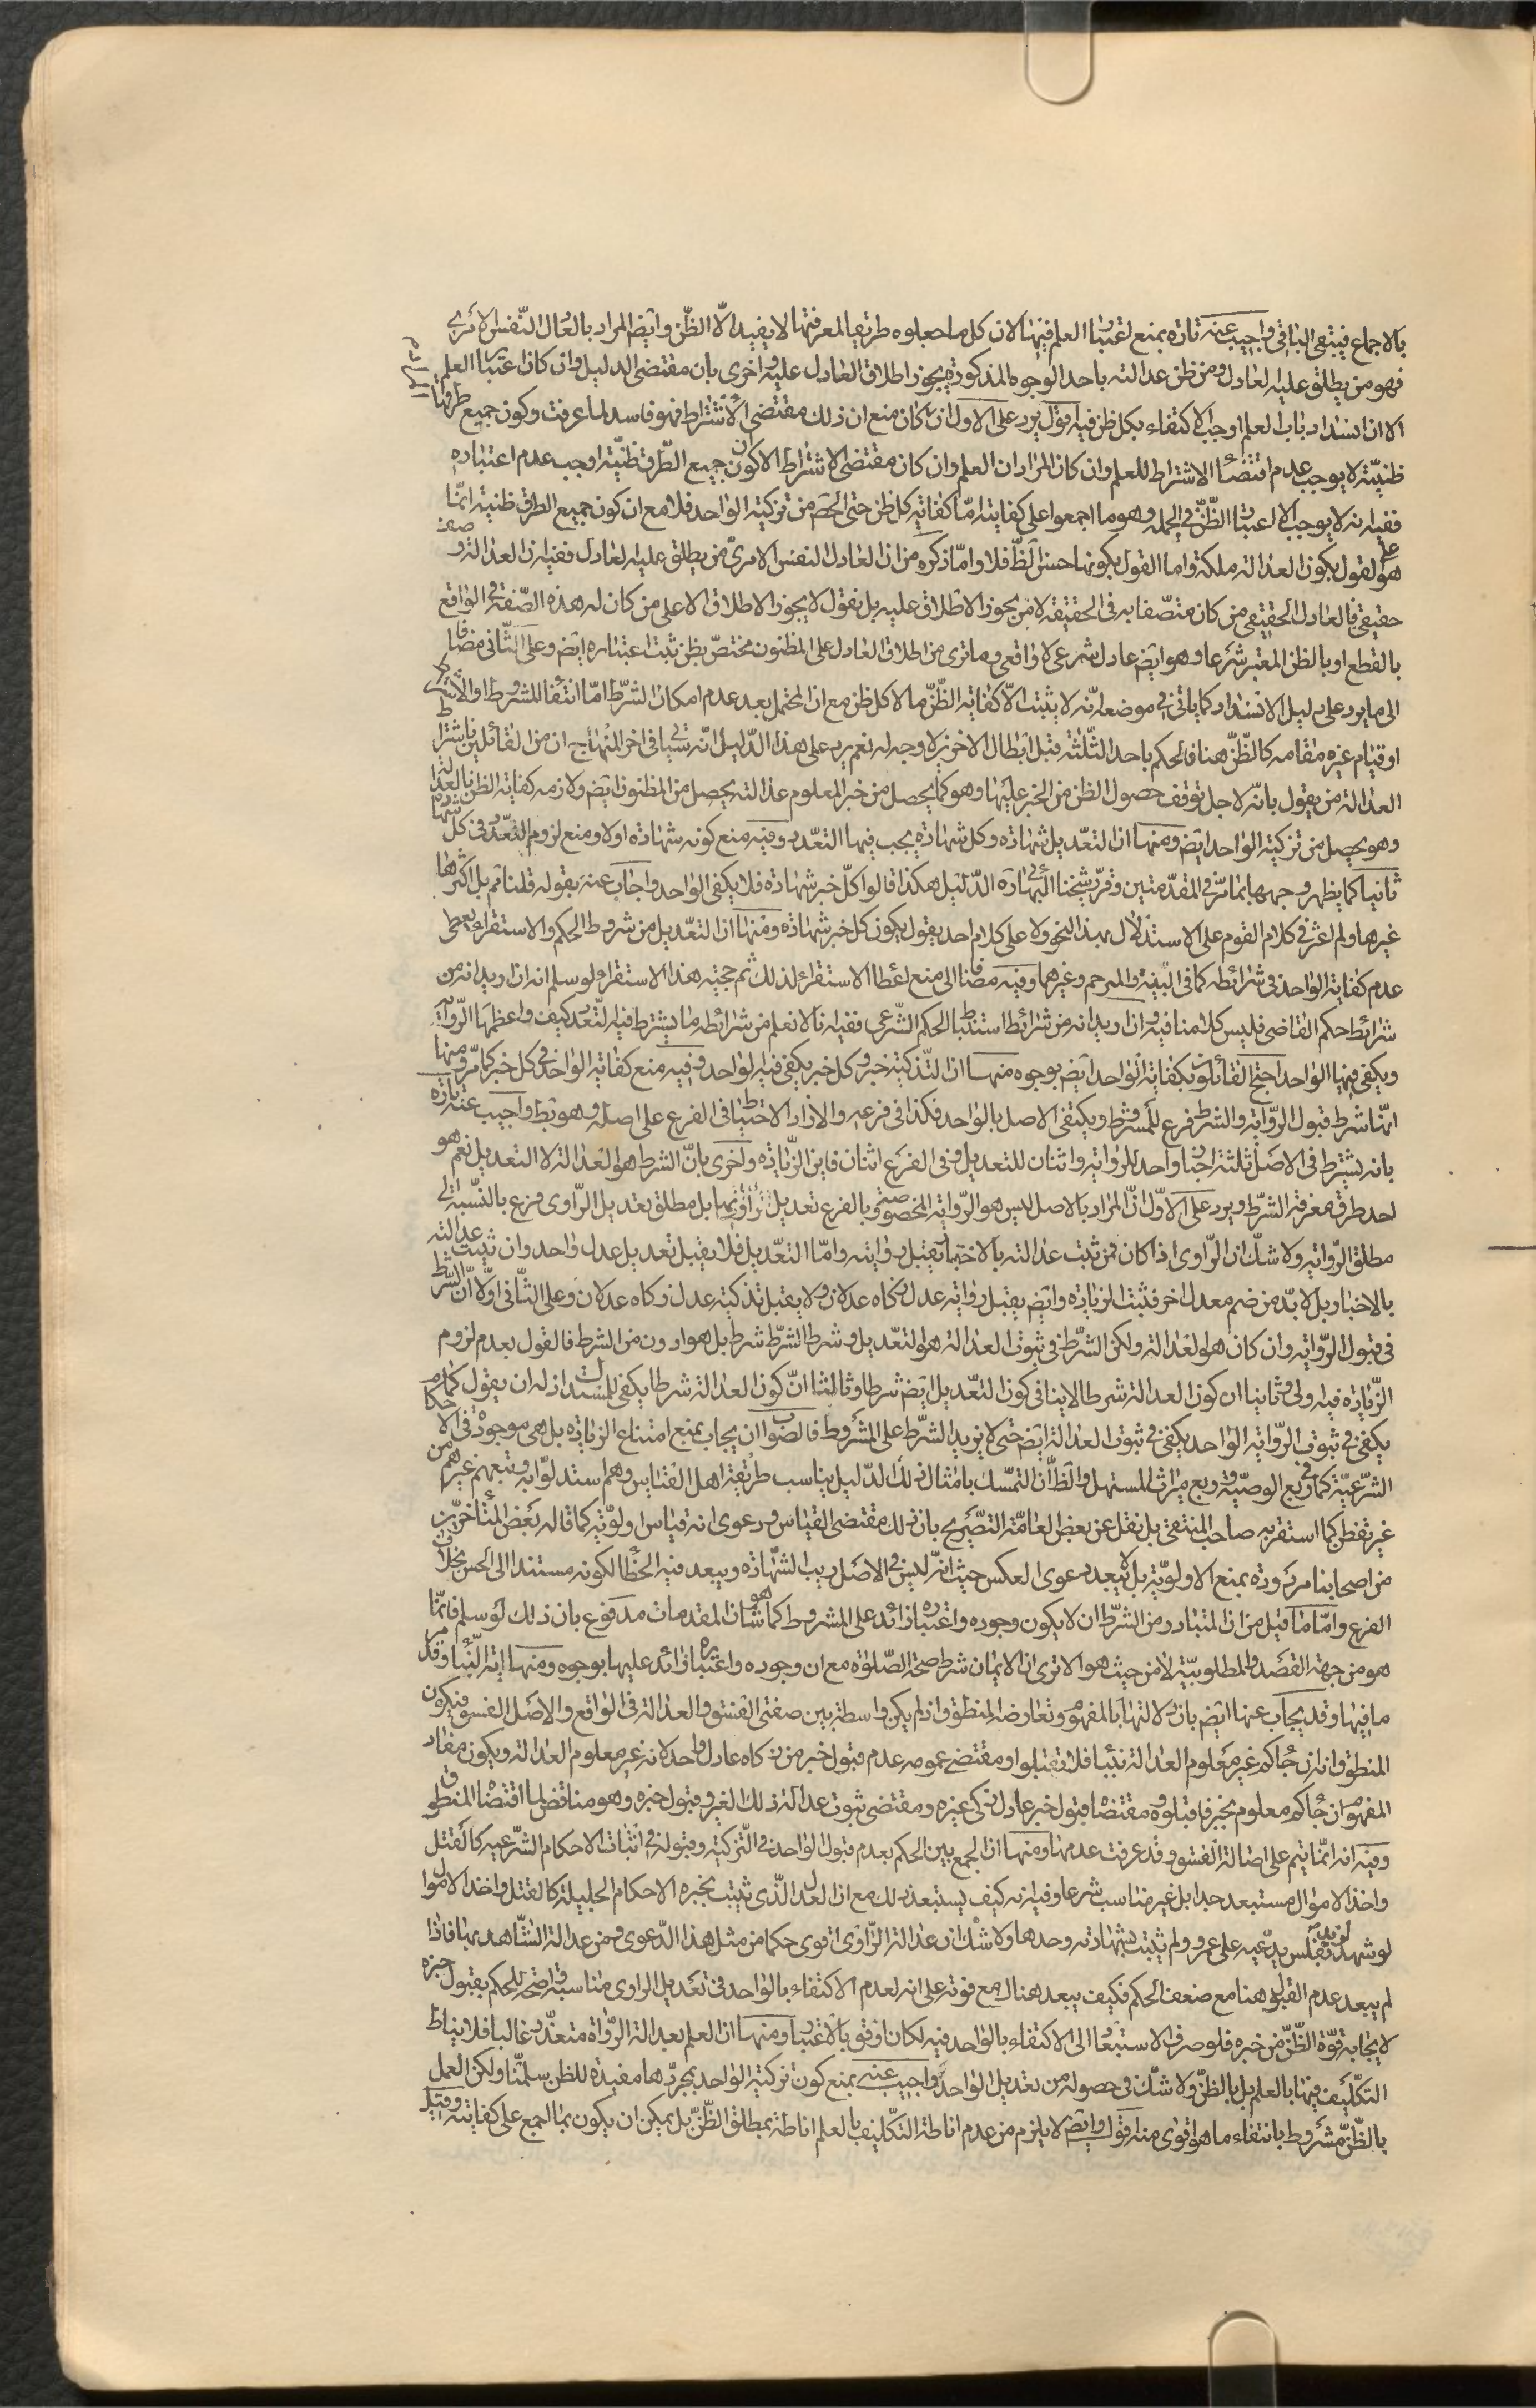 بالاجماع فينتفى الباقى واجيب عنه تارة بمنع اعتبار العلم فيها لان كل ما جعلوه طريقا لمعرفتها لا يفيد الا الظن وايض المراد بالعدل النفس الامرى
فهو من يطلق عليه العادل ومن ظن عدالته باحد الوجوه المذكورة يجوز اطلاق العادل عليه واخرى بان مقتضى الدليل وان كان اعتبار العلم
الا ان انسداد باب العلم اوجب الاكتفاء بكل ظن فيه اقول يرد على الاول انه ان كان منع ان ذلك مقتضى الاشتراط فهو فاسد لما عرفت وكون جميع طرقها
ظنية لا يوجب عدم اقتضاء الاشتراط للعلم وان كان المراد ان العلم وان كان مقتضى الاشتراط الا كون جميع الطرق ظنية اوجب عدم اعتباره
ففيه انه لا يوجب الا اعتبار الظن فى الجملة وهو ما اجمعوا على كفايته اما كفاية كل ظن حتى الحاصل من تزكية الواحد فلا مع ان كون جميع الطرق ظنية انما
هو على القول بكون العدالة ملكة واما القول بكونها حسن الظ فلا واما ذكره من ان العادل النفس الامرى من يطلق عليه العادل ففيه ان العدالة وصف
حقيقى فالعادل الحقيقى من كان متصفا به فى الحقيقة لا من يجوز الاطلاق عليه بل نقول لا يجوز الاطلاق الا على من كان له هذه الصفة فى الواقع
بالقطع او بالظن المعتبر شرعا وهو ايض عادل شرعى لا واقعى وما ترى من اطلاق العادل على المظنون مختص بظن ثبت اعتباره ايض وعلى الثانى مضافا
الى ما يرد على دليل الانسداد كما ياتى فى موضعه انه لا يثبت الا كفاية الظن ما لا كل ظن مع ان المحتمل بعد عدم امكان الشرط اما انتفاء المشروط او الاشتراط
او قيام غيره مقامه كالظن هنا فالحكم باحد الثلثة قبل ابطال الاخرين لا وجه له نعم يرد على هذا الدليل انه سياتى فى اخر المنهاج ان من القائلين باشتراط
العدالة من يقول بانه لاجل توقف حصول الظن من الخبر عليها وهو كما يحصل من خبر المعلوم عدالته يحصل من المظنون ايض ولازمه كفاية الظن بالعدالة
وهو يحصل من تزكية الواحد ايض ومنها ان التعديل شهادة وكل شهادة يجب فيها التعدد وفيه منع كونه شهادة اولا ومنع لزوم التعدد فى كل شهادة
ثانيا كما يظهر وجهها بما مر فى المقدمتين وقرر شيخنا البهائى ره الدليل هكذا قالوا كل خبر شهادة فلا يكفى الواحد واجاب عنه بقوله قلنا ثم بل اكثرها
غيرها ولم اعثر فى كلام القوم على الاستدلال بهذا النحو ولا على كلام احد يقول بكون كل خبر شهادة ومنها ان التعديل من شروط الحكم والاستقراء يعطى
عدم كفاية الواحد فى شرائطه كما فى البينة والمترجم وغيرهما وفيه مضافا الى منع اعطاء الاستقراء لذلك ثم حجية هذا الاستقراء لو سلم انه ان اريد انه من
شرائط حكم القاضى فليس كلامنا فيه وان اريد انه من شرائط استنباط الحكم الشرعى ففيه انا لا نعلم من شرائطه ما يشترط فيه التعدد كيف واعظمها الرواية
ويكفى فيها الواحد احتج القائلون بكفاية الواحد ايض بوجوه منها ان التزكية خبر وكل خبر يكفى فيه الواحد وفيه منع كفاية الواحد فى كل خبر كما مر ومنها
انها شرط قبول الرواية والشرط فرع للمشروط ويكتفى الاصل بالواحد فكذا فى فرعه والا زاد الاحتياط فى الفرع على اصله وهو بط واجيب عنه تارة
بانه يشترط فى الاصل ثلثة اخبار واحد للرواية واثنان للتعديل وفى الفرع اثنان فاين الزيادة واخرى بان الشرط هو العدالة لا التعديل نعم هو
احد طرق معرفة الشرط ويرد على الاول ان المراد بالاصل ليس هو الرواية المخصوصة وبالفرع تعديل راويها بل مطلق تعديل الراوى فرع بالنسبة الى
مطلق الرواية ولا شك ان الراوى اذا كان ممن ثبت عدالته بالاختبار يقبل روايته واما التعديل فلا يقبل تعديل عدل واحد وان ثبت عدالته
بالاختبار بل لابد من ضم معدل اخر فثبت الزيادة وايض يقبل رواية عدل زكاه عدلان ولا يقبل تزكية عدل زكاه عدلان وعلى الثانى اولا ان الشرط
فى قبول الرواية وان كان هو العدالة ولكن الشرط فى ثبوت العدالة هو التعديل وشرط الشرط شرط بل هو ادون من الشرط فالقول بعدم لزوم
الزيادة فيه اولى وثانيا ان كون العدالة شرطا لا ينافى كون التعديل ايض شرطا وثالثا ان كون العدالة شرطا يكفى للمستدل اذ له ان يقول كما
يكفى فى ثبوت الرواية الواحد يكفى فى ثبوت العدالة ايض حتى لا يزيد الشرط على المشروط فالصواب ان يجاب بمنع امتناع الزيادة بل هى موجودة فى الاحكام
الشرعية كما فى ربع الوصية وربع ميراث المستهل والظ ان التمسك بامثال ذلك الدليل يناسب طريقة اهل القياس وهم استدلوا به وتبعهم غيرهم من
غير تفطن كما استقر به صاحب المنتقى بل نقل عن بعض العامة التصريح بان ذلك مقتضى القياس ودعوى انه قياس اولوية كما قاله بعض المتاخرين
من اصحابنا مردودة بمنع الاولوية بل لا يبعد دعوى العكس حيث انه ليس فى الاصل ريب الشهادة ويبعد فيه الخطا لكونه مستندا الى الحس بخلاف
الفرع واما ما قيل من ان المتبادر من الشرط ان لا يكون وجوده واعتباره زائد على المشروط كما هو شان المقدمات مدفوع بان ذلك لو سلم فانما
هو من جهة القصد والمطلوبية لا من حيث هو الا ترى ان الايمان شرط صحة الصلوة مع ان وجوده واعتباره زائد عليها بوجوه ومنها اية النبا وقد مر
ما فيها وقد يجاب عنها ايض بان دلالتها بالمفهوم وتعارضه المنطوق اذ لم يكن واسطة بين صفتى الفسق والعدالة فى الواقع والاصل الفسق فيكون
المنطوق انه ان جاكم غير معلوم العدالة بنبا فلا تقبلوا ومقتضى عمومه عدم قبول خبر من زكاه عادل واحد لانه غير معلوم العدالة ويكون مفاد
المفهوم ان جاكم معلوم بخبر فاقبلوه ومقتضاه قبول خبر عادل زكى غيره ومقتضى ثبوت عدالة ذلك الغير وقبول خبره وهو مناقض لما اقتضاه المنطوق
وفيه انه انما يتم على اصالة الفسق وقد عرفت عدمها ومنها ان الجمع بين الحكم بعدم قبول الواحد فى التزكية وقبوله فى اثبات الاحكام الشرعية كالقتل
واخذ الاموال مستبعد جدا بل غير مناسب شرعا وفيه انه كيف يستبعد ذلك مع ان العدل الذى يثبت بخبره الاحكام الجليلة كالقتل واخذ الاموال
لو شهد لزيد بفلس يدعيه على عمرو ولم يثبت بشهادته وحدها ولا شك ان عدالة الراوى اقوى حكما من مثل هذا الدعوى ومن عدالة الشاهد بها فاذا
لم يبعد عدم القبول هنا مع ضعف الحكم فكيف يبعد هناك مع قوته على انه لعدم الاكتفاء بالواحد فى تعديل الراوى مناسبة واضحة للحكم بقبول خبره
لايجابه قوة الظن من خبره فلو صرف الاستبعاد الى الاكتفاء بالواحد فيه لكان اوفق بالاعتبار ومنها ان العلم بعدالة الرواة متعذر غالبا فلا يناط
التكليف فيها بالعلم بل بالظن ولا شك فى حصوله من تعديل الواحد واجيب عنه بمنع كون تزكية الواحد بمجردها مفيدة للظن سلمنا ولكن العمل
بالظن مشروط بانتفاء ما هو اقوى منه اقول وايض لا يلزم من عدم اناطة التكليف بالعلم اناطة بمطلق الظن بل يمكن ان يكون بما اجمع على كفايته وقيل